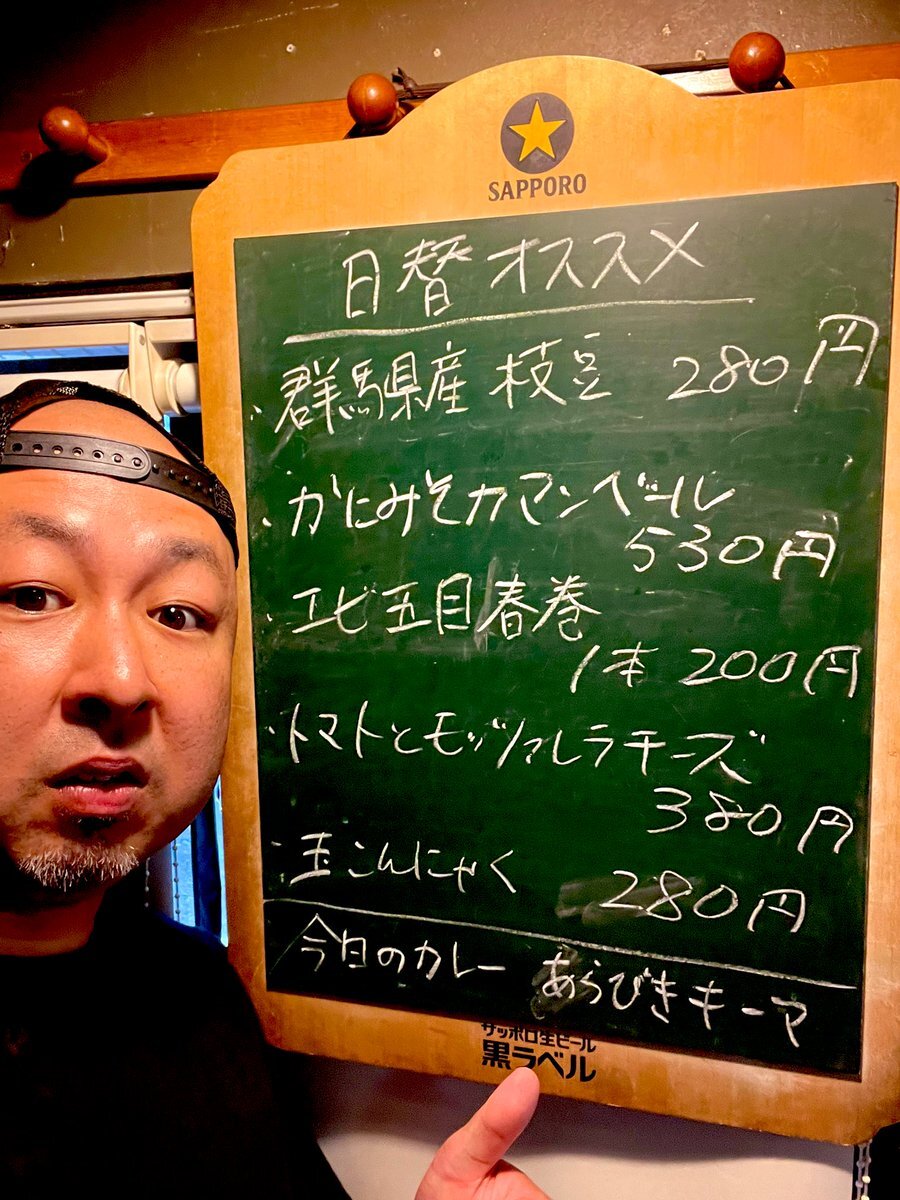 SAPPORO
日替オススメ
・群馬県産 枝豆 280円
・かにみそカマンベール
530円
・エビ五目春巻
1本 200円
・トマトとモッツァレラチーズ
380円
・玉こんにゃく 280円
今日のカレー あらびきキーマ
サッポロ生ビール
黒ラベル